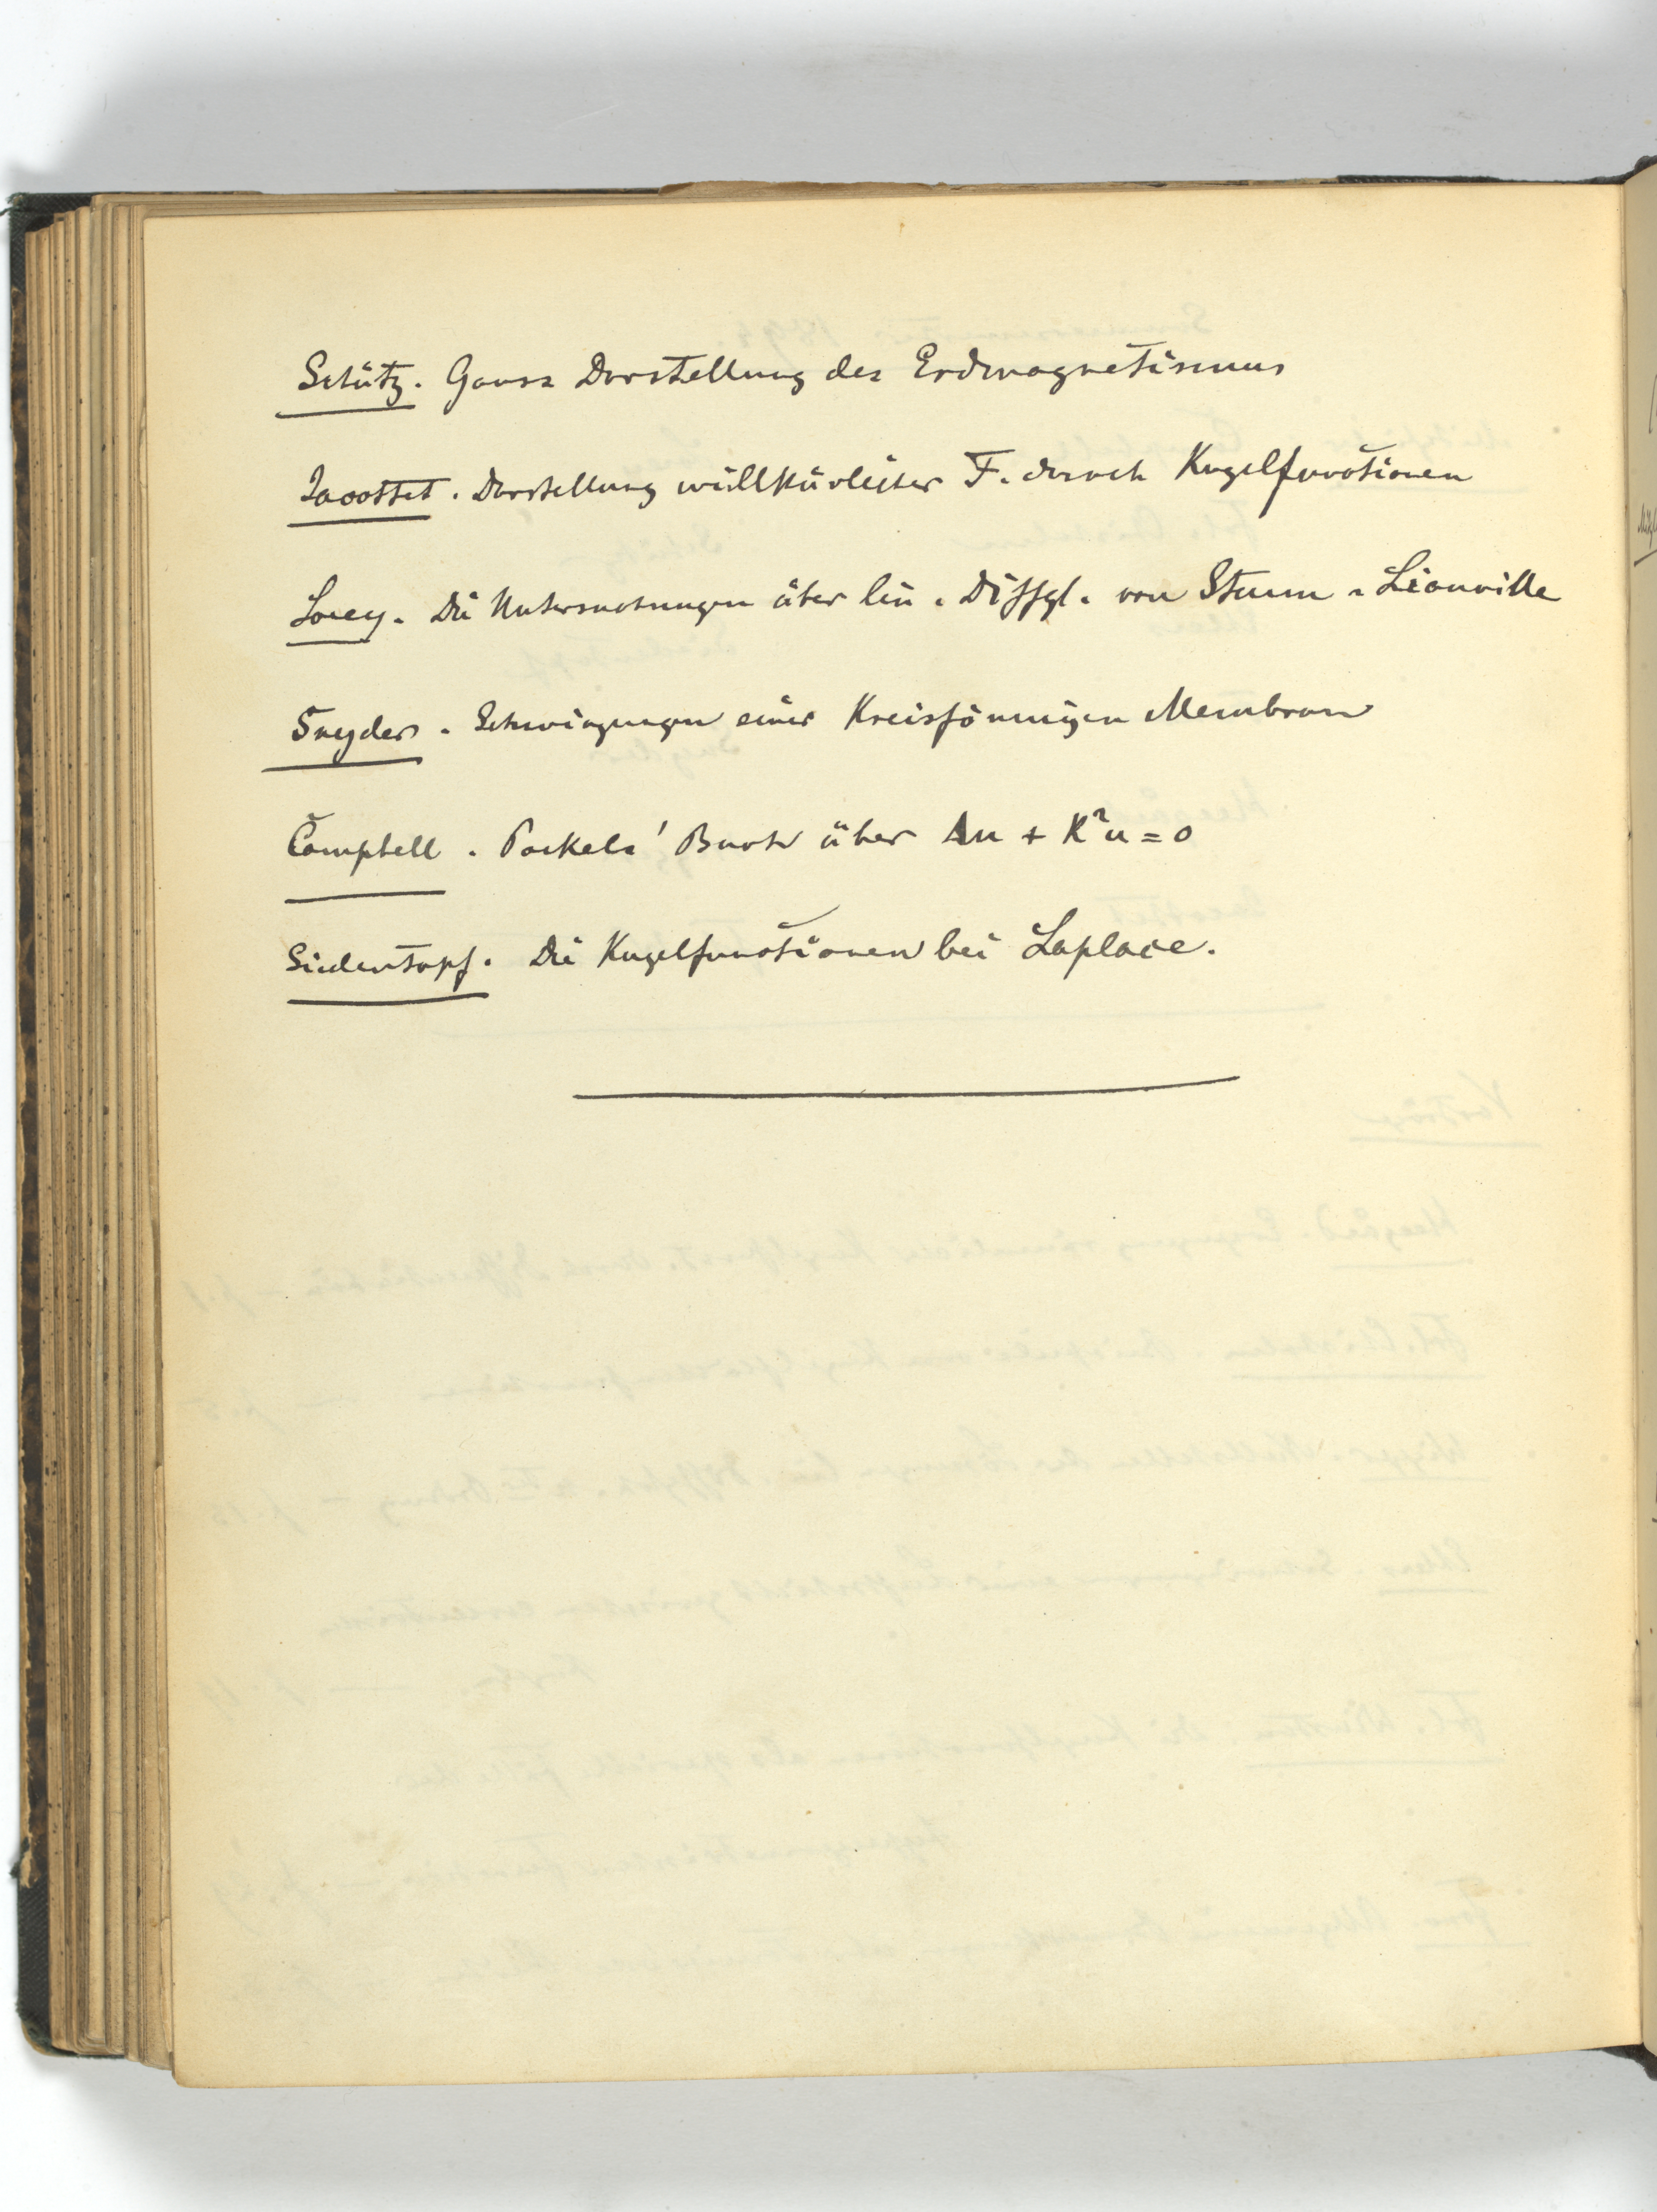 Schütz. Gauss Darstellung des Erdmagnetismus
Jaccottet. Darstellung willkürlicher F. durch Kugelfunctionen
Lorey. Die Untersuchungen über lin. Diffgl. von Sturm-Liouville
Snyder. Schwingungen einer Kreisförmigen Membran
Campbell. Pockels' Buch über Δu + K²u = 0
Siedentopf. Die Kugelfunctionen bei Laplace.